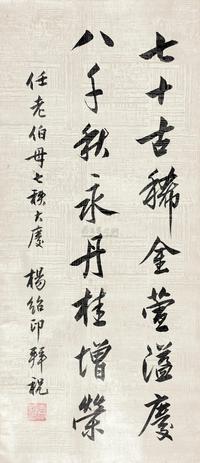 七十古稀金萱溢慶
八千秋永丹桂增榮
任老伯母七秩大慶 楊紹印拜祝